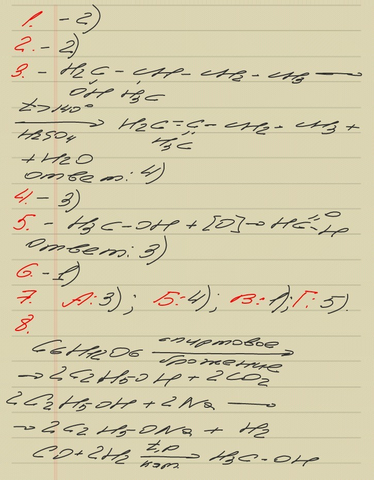 1. - 2)
2. - 2)
3. - H2C - CH - CH2 - CH3 →
OH H3C
t>140°
H2SO4 → H2C = C - CH2 - CH3 +
H3C
+ H2O
ответ: 4)
4 - 3)
5. - H3C-OH + [O] → HC=O-H
ответ: 3)
6. - 1)
7. А: 3); Б: 4); В: 1); Г: 5).
8.
C6H12O6 спиртовое брожение →
→ 2C2H5OH + 2CO2
2C2H5OH + 2Na →
→ 2C2H5ONa + H2
CO + 2H2 t,p кат. → H3C-OH